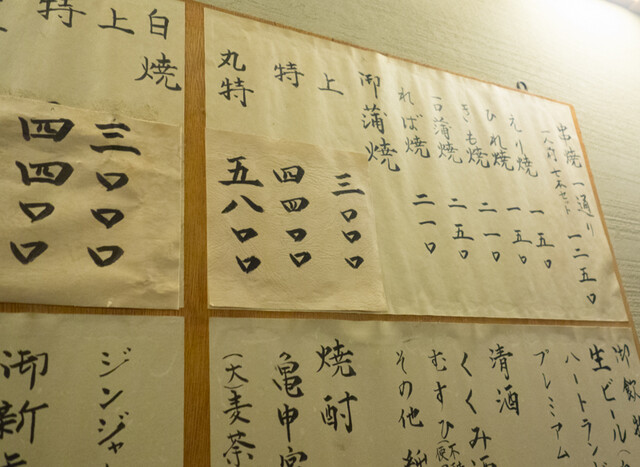 串焼一通り 一二五〇
一人前 七本セット
えり焼 一五〇
ひれ焼 二一〇
きも焼 二五〇
一口蒲焼
れば焼 二一〇
御蒲焼
上 三〇〇〇
特 四四〇〇
丸特 五八〇〇
白焼
上 三〇〇〇
特 四四〇〇
御飲
生ビール
ハートラン
プレミアム
清酒
くくみ酒
むすひ
その他
焼酎
亀甲宮
(大)麦茶
ジンジャ
御新